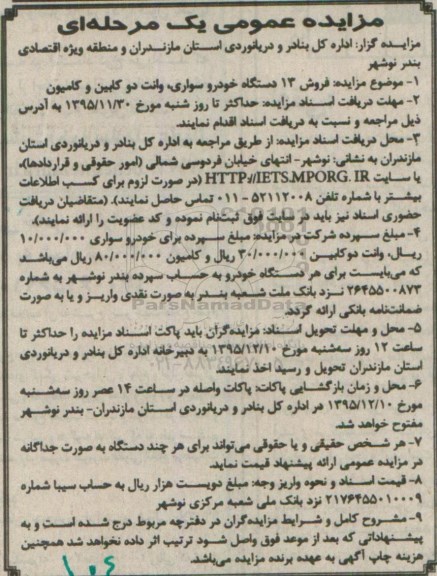 مزایده عمومی یک مرحله‌ای
مزایده گزار: اداره کل بنادر و دریانوردی استان مازندران و منطقه ویژه اقتصادی
بندر نوشهر
۱- موضوع مزایده: فروش ۱۳ دستگاه خودرو سواری، وانت دو کابین و کامیون
۲- مهلت دریافت اسناد مزایده: حداکثر تا روز شنبه مورخ ۱۳۹۵/۱۱/۳۰ به آدرس
ذیل مراجعه و نسبت به دریافت اسناد اقدام نمایند.
۳- محل دریافت اسناد مزایده: از طریق مراجعه به اداره کل بنادر و دریانوردی استان
مازندران به نشانی: نوشهر- انتهای خیابان فردوسی شمالی (امور حقوقی و قراردادها)،
یا سایت HTTP://IETS.MPORG.IR (در صورت لزوم برای کسب اطلاعات
بیشتر با شماره تلفن ۵۲۱۱۲۰۰۸ - ۰۱۱ تماس حاصل نمایند). (متقاضیان دریافت
حضوری اسناد نیز باید در سایت فوق ثبت‌نام نموده و کد عضویت را ارائه نمایند).
۴- مبلغ سپرده شرکت در مزایده: مبلغ سپرده برای خودرو سواری ۱۰/۰۰۰/۰۰۰
ریال، وانت دوکابین ۳۰/۰۰۰/۰۰۰ ریال و کامیون ۸۰/۰۰۰/۰۰۰ ریال می‌باشد
که می‌بایست برای هر دستگاه خودرو به حساب سپرده بندر نوشهر به شماره
۲۶۴۵۵۰۰۸۷۳ نزد بانک ملت شعبه بندر به صورت نقدی واریز و یا به صورت
ضمانت‌نامه بانکی ارائه گردد.
۵- محل و مهلت تحویل اسناد: مزایده‌گران باید پاکت اسناد مزایده را حداکثر تا
ساعت ۱۲ روز سه‌شنبه مورخ ۱۳۹۵/۱۲/۱۰ به دبیرخانه اداره کل بنادر و دریانوردی
استان مازندران تحویل و رسید اخذ نمایند.
۶- محل و زمان بازگشایی پاکات: پاکات واصله در ساعت ۱۴ عصر روز سه‌شنبه
مورخ ۱۳۹۵/۱۲/۱۰ در اداره کل بنادر و دریانوردی استان مازندران- بندر نوشهر
مفتوح خواهد شد.
۷- هر شخص حقیقی و یا حقوقی می‌تواند برای هر چند دستگاه به صورت جداگانه
در مزایده عمومی ارائه پیشنهاد قیمت نماید.
۸- قیمت اسناد و نحوه واریز وجه: مبلغ دویست هزار ریال به حساب سیبا شماره
۲۱۷۶۴۵۵۰۱۰۰۰۹ نزد بانک ملی شعبه مرکزی نوشهر
۹- مشروح کامل و شرایط مزایده‌گران در دفترچه مربوط درج شده است و به
پیشنهاداتی که بعد از موعد فوق واصل شود ترتیب اثر داده نخواهد شد همچنین
هزینه چاپ آگهی به عهده برنده مزایده می‌باشد.
ParsNamadData